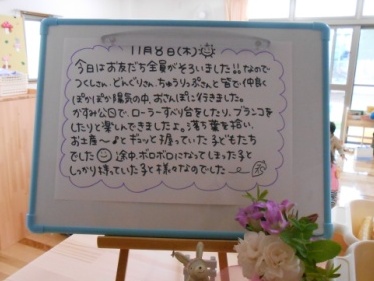 11月8日(木)
今日はお友だち全員がそろいました!! なので
つくしさん、どんぐりさん、ちゅうりっぷさんと皆で仲良く
ぽかぽか陽気の中、おさんぽに行きました。
かすみ公園で、ローラーすべり台をしたり、ブランコを
したりと楽しんできましたよ。落ち葉を拾い、
お土産〜♪とギュッと握っていた子どもたち
でした 途中、ボロボロになってしまった子と
しっかり持っていた子と様々なのでした〜